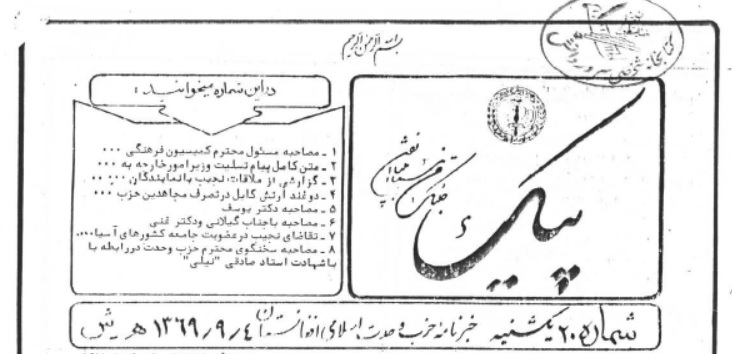 بسم الله الرحمن الرحیم
در این شماره میخوانید :
۱ - مصاحبه مسئول محترم کمیسیون فرهنگی ...
۲ - متن کامل پیام تسلیت وزیر امور خارجه به ...
۳ - گزارشی از ملاقات نجیب با نمایندگان ...
۴ - دو غند ارتش کابل در تصرف مجاهدین حزب ...
۵ - مصاحبه دکتر یوسف
۶ - مصاحبه با جناب گیلانی و دکتر غنی
۷ - تقاضای نجیب در عضویت جامعه کشورهای آسیا...
۸ - مصاحبه سخنگوی محترم حزب وحدت در رابطه با
با شهادت استاد صادقی "نیلی"
پیک
شماره ۲۰ یکشنبه خبرنامه حزب وحدت اسلامی افغانستان ۱۳۶۹/۹/۴ هـ ش